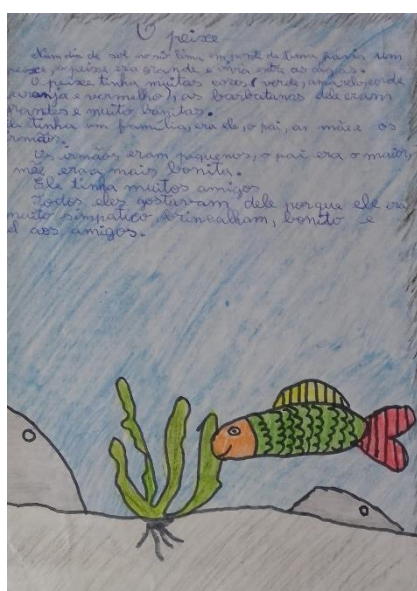 O peixe
Num dia de sol no rio lima em ponte de lima havia um
peixe, o peixe era grande e vivia entre as algas.
O peixe tinha muitas cores (verde, amarelo, cor de
laranja e vermelho), as barbatanas dele eram
e muito bonitas.
tinha um família, era ele, o pai, as mãe e os
irmãos.
Os irmãos eram pequenos, o pai era o maior,
mãe era a mais bonita.
Ele tinha muitos amigos
Todos eles gostavam dele porque ele era
muito simpatico, brincalham, bonito e
aos amigos.